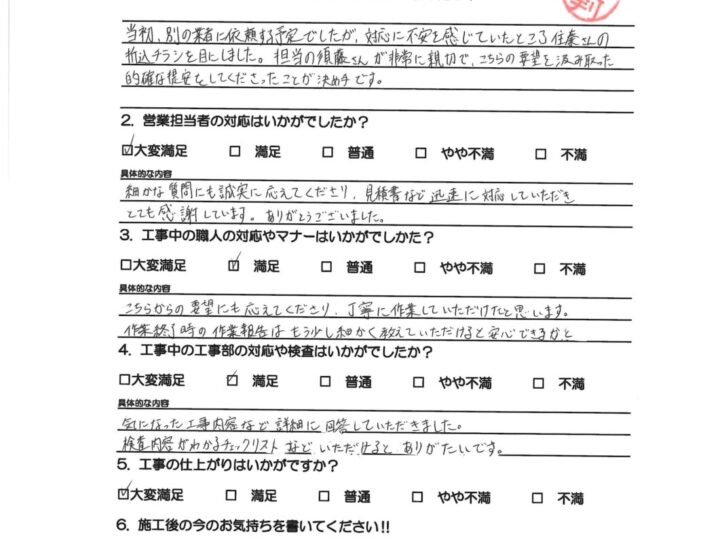 当初、別の業者に依頼する予定でしたが、対応に不安を感じていたところ住秦さんの
折込チラシを目にしました。担当の須藤さんが非常に親切で、こちらの要望を汲み取った
的確な提案をしてくださったことが決め手です。
2. 営業担当者の対応はいかがでしたか?
☑大変満足 □ 満足 □ 普通 □ やや不満 □ 不満
具体的な内容
細かな質問にも誠実に応えてくださり、見積書など迅速に対応していただき
とても感謝しています。ありがとうございました。
3. 工事中の職人の対応やマナーはいかがでしかた?
□大変満足 ☑ 満足 □ 普通 □ やや不満 □ 不満
具体的な内容
こちらからの要望にも応えてくださり、丁寧に作業していただけたと思います。
作業終了時の作業報告はもう少し細かく教えていただけると安心できるかと
4. 工事中の工事部の対応や検査はいかがでしたか?
□大変満足 ☑ 満足 □ 普通 □ やや不満 □ 不満
具体的な内容
気になった工事内容など詳細に回答していただきました。
検査内容がわかるチェックリストなどいただけるとありがたいです。
5. 工事の仕上がりはいかがですか?
☑大変満足 □ 満足 □ 普通 □ やや不満 □ 不満
6. 施工後の今のお気持ちを書いてください!!